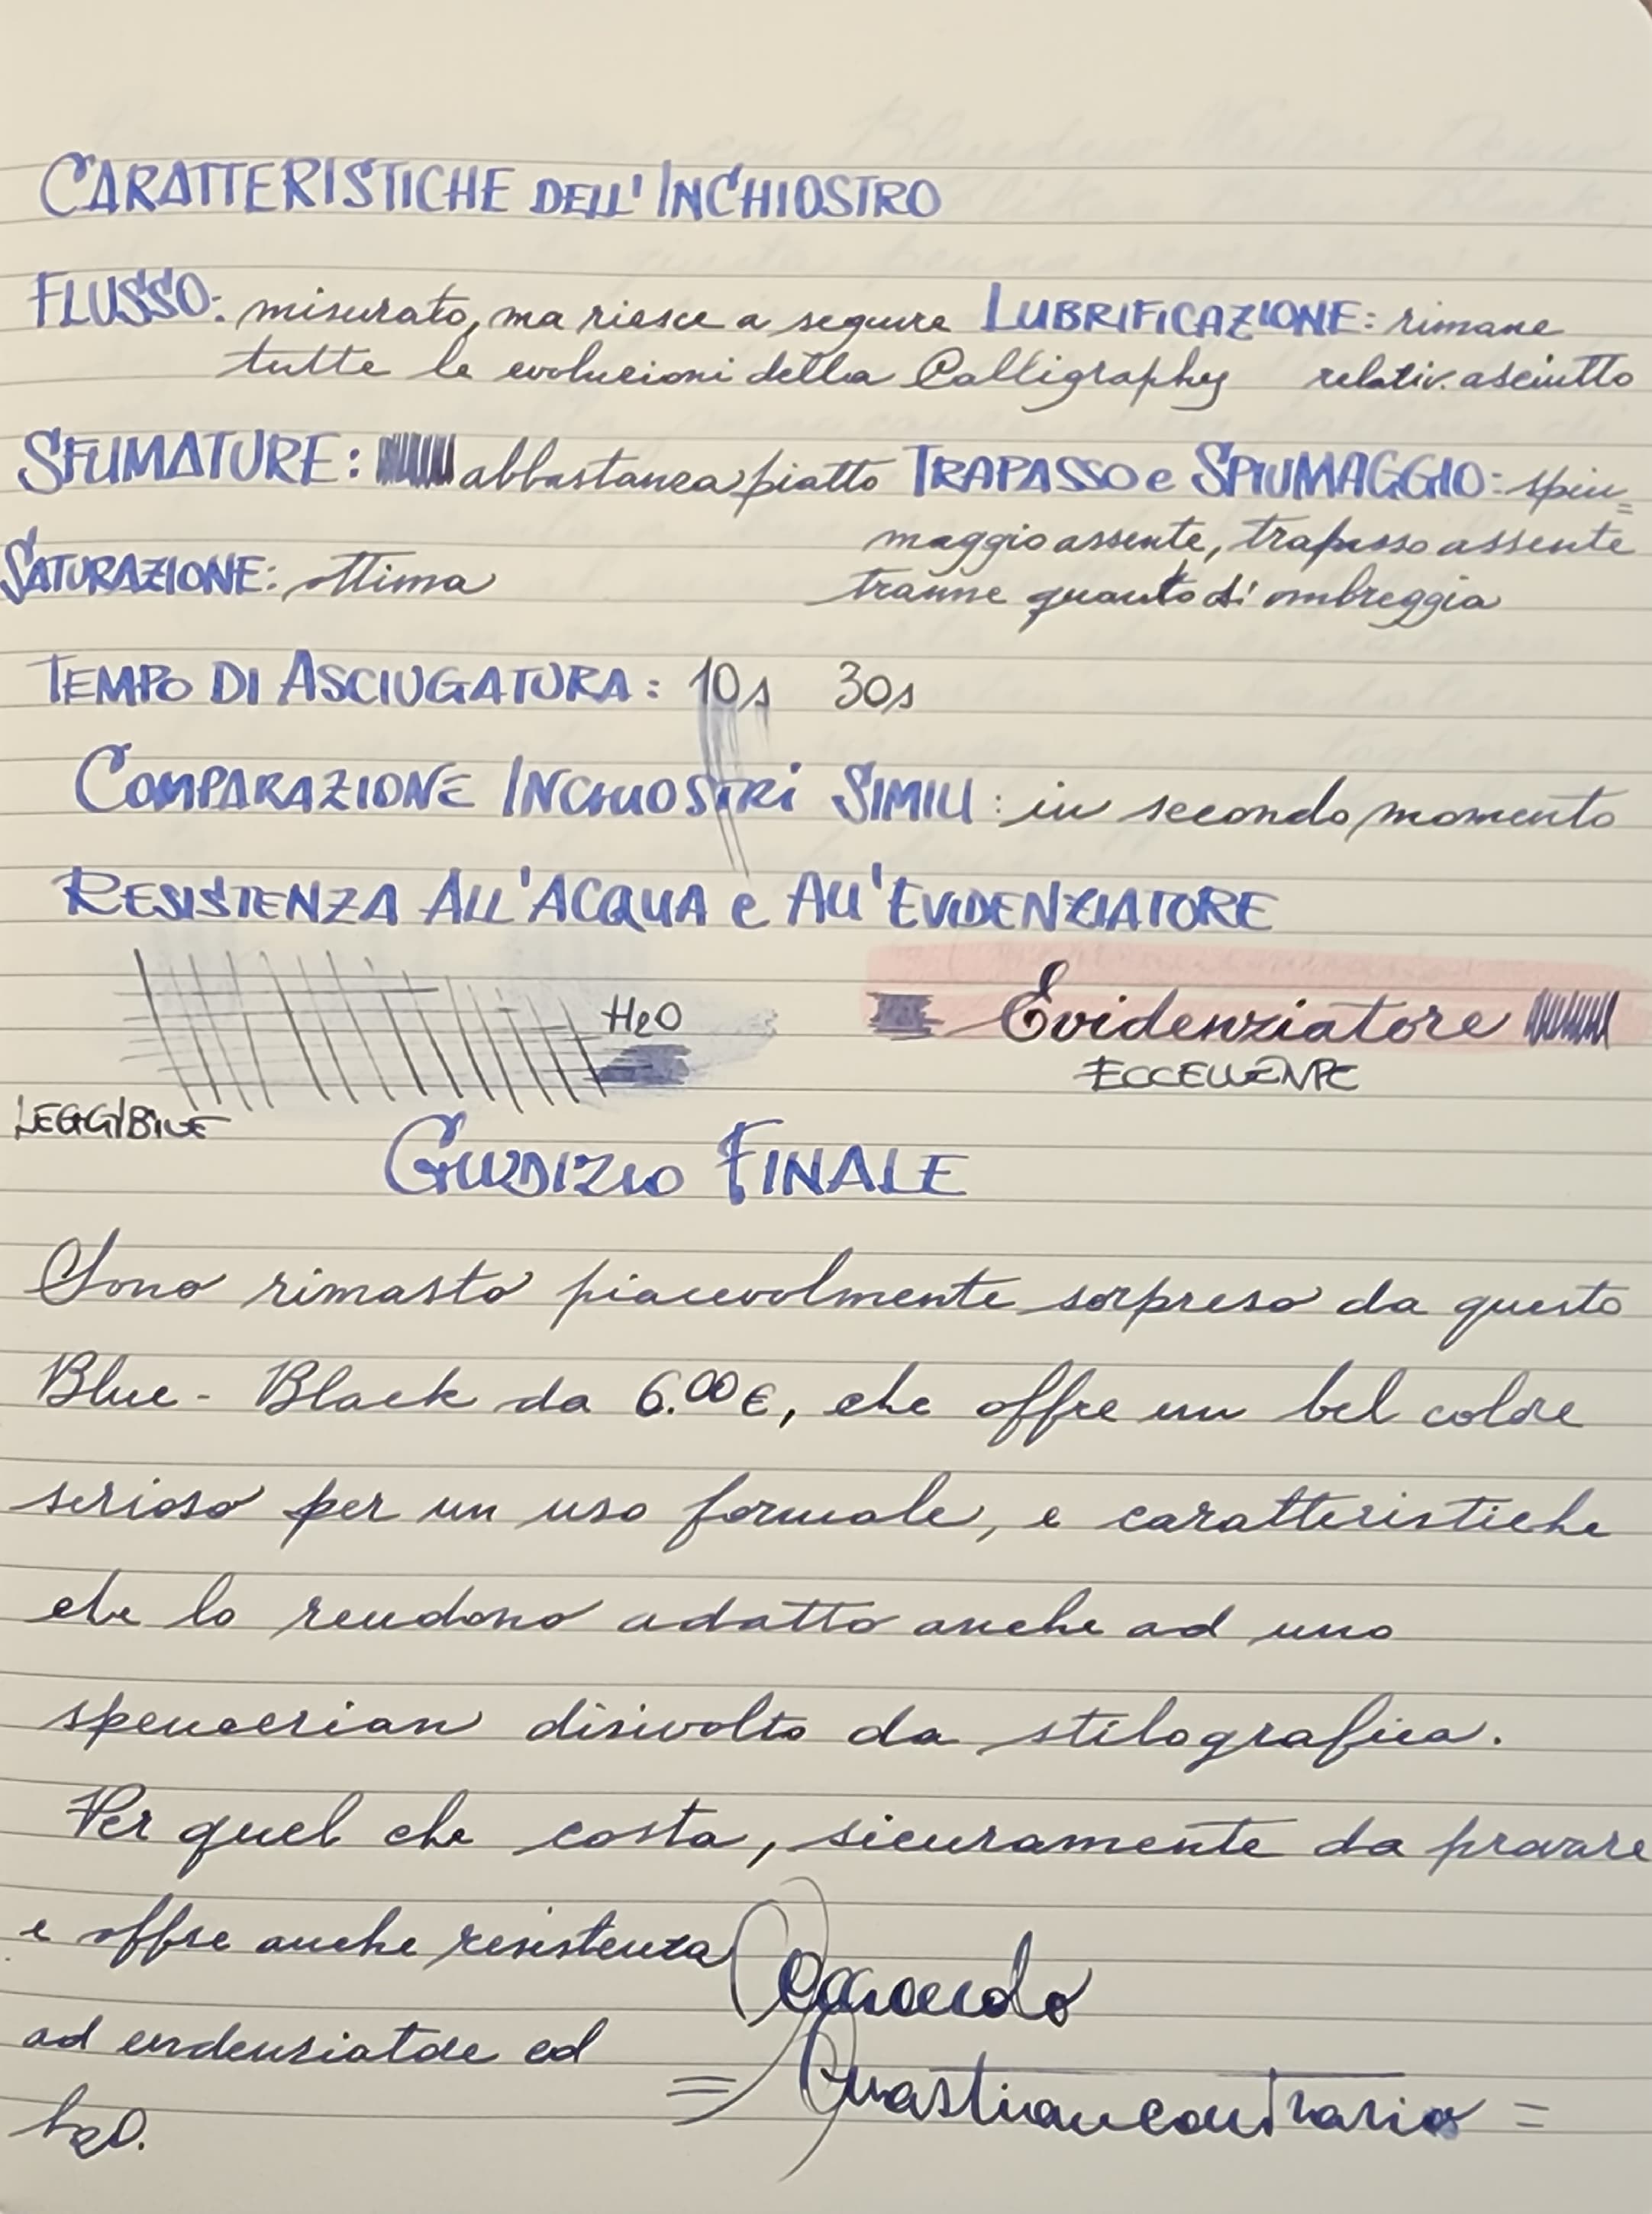 CARATTERISTICHE DELL'INCHIOSTRO
FLUSSO: misurato, ma riesce a seguire
tutte le evoluzioni della Calligraphy
LUBRIFICAZIONE: rimane
relativ. asciutto
SFUMATURE: abbastanza piatto
TRAPASSO e SPIUMAGGIO: spiu=
maggio assente, trapasso assente
tranne quanto si ombreggia
SATURAZIONE: ottima
TEMPO DI ASCIUGATURA: 10s 30s
COMPARAZIONE INCHIOSTRI SIMILI: in secondo momento
RESISTENZA ALL'ACQUA e ALL'EVIDENZIATORE
H2O
LEGGIBILE
Evidenziatore
ECCELLENTE
GIUDIZIO FINALE
Sono rimasto piacevolmente sorpreso da questo
Blue-Black da 6.00€, che offre un bel colore
serioso per un uso formale, e caratteristiche
che lo rendono adatto anche ad uno
spencerian disivolto da stilografica.
Per quel che costa, sicuramente da provare
e offre anche resistenza
ad evidenziatore ed
h2O.
= =